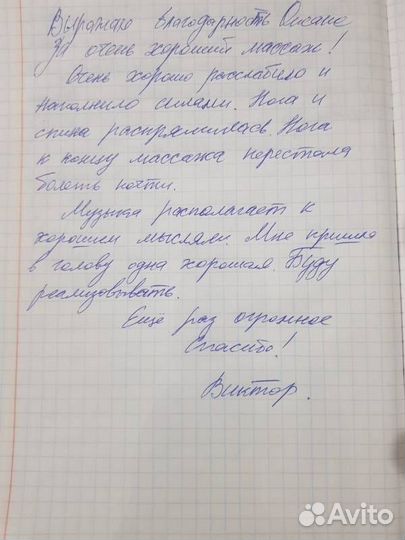 Выражаю благодарность Оксане
За очень хороший массаж!
Очень хорошо расслабило и
наполнило силами. Нога и
спина распрямилась. Нога
к концу массажа перестала
болеть почти.
Музыка располагает к
хорошим мыслям. Мне пришла
в голову одна хорошая. Буду
реализовывать.
Еще раз огромное
Спасибо!
Виктор.
Avito